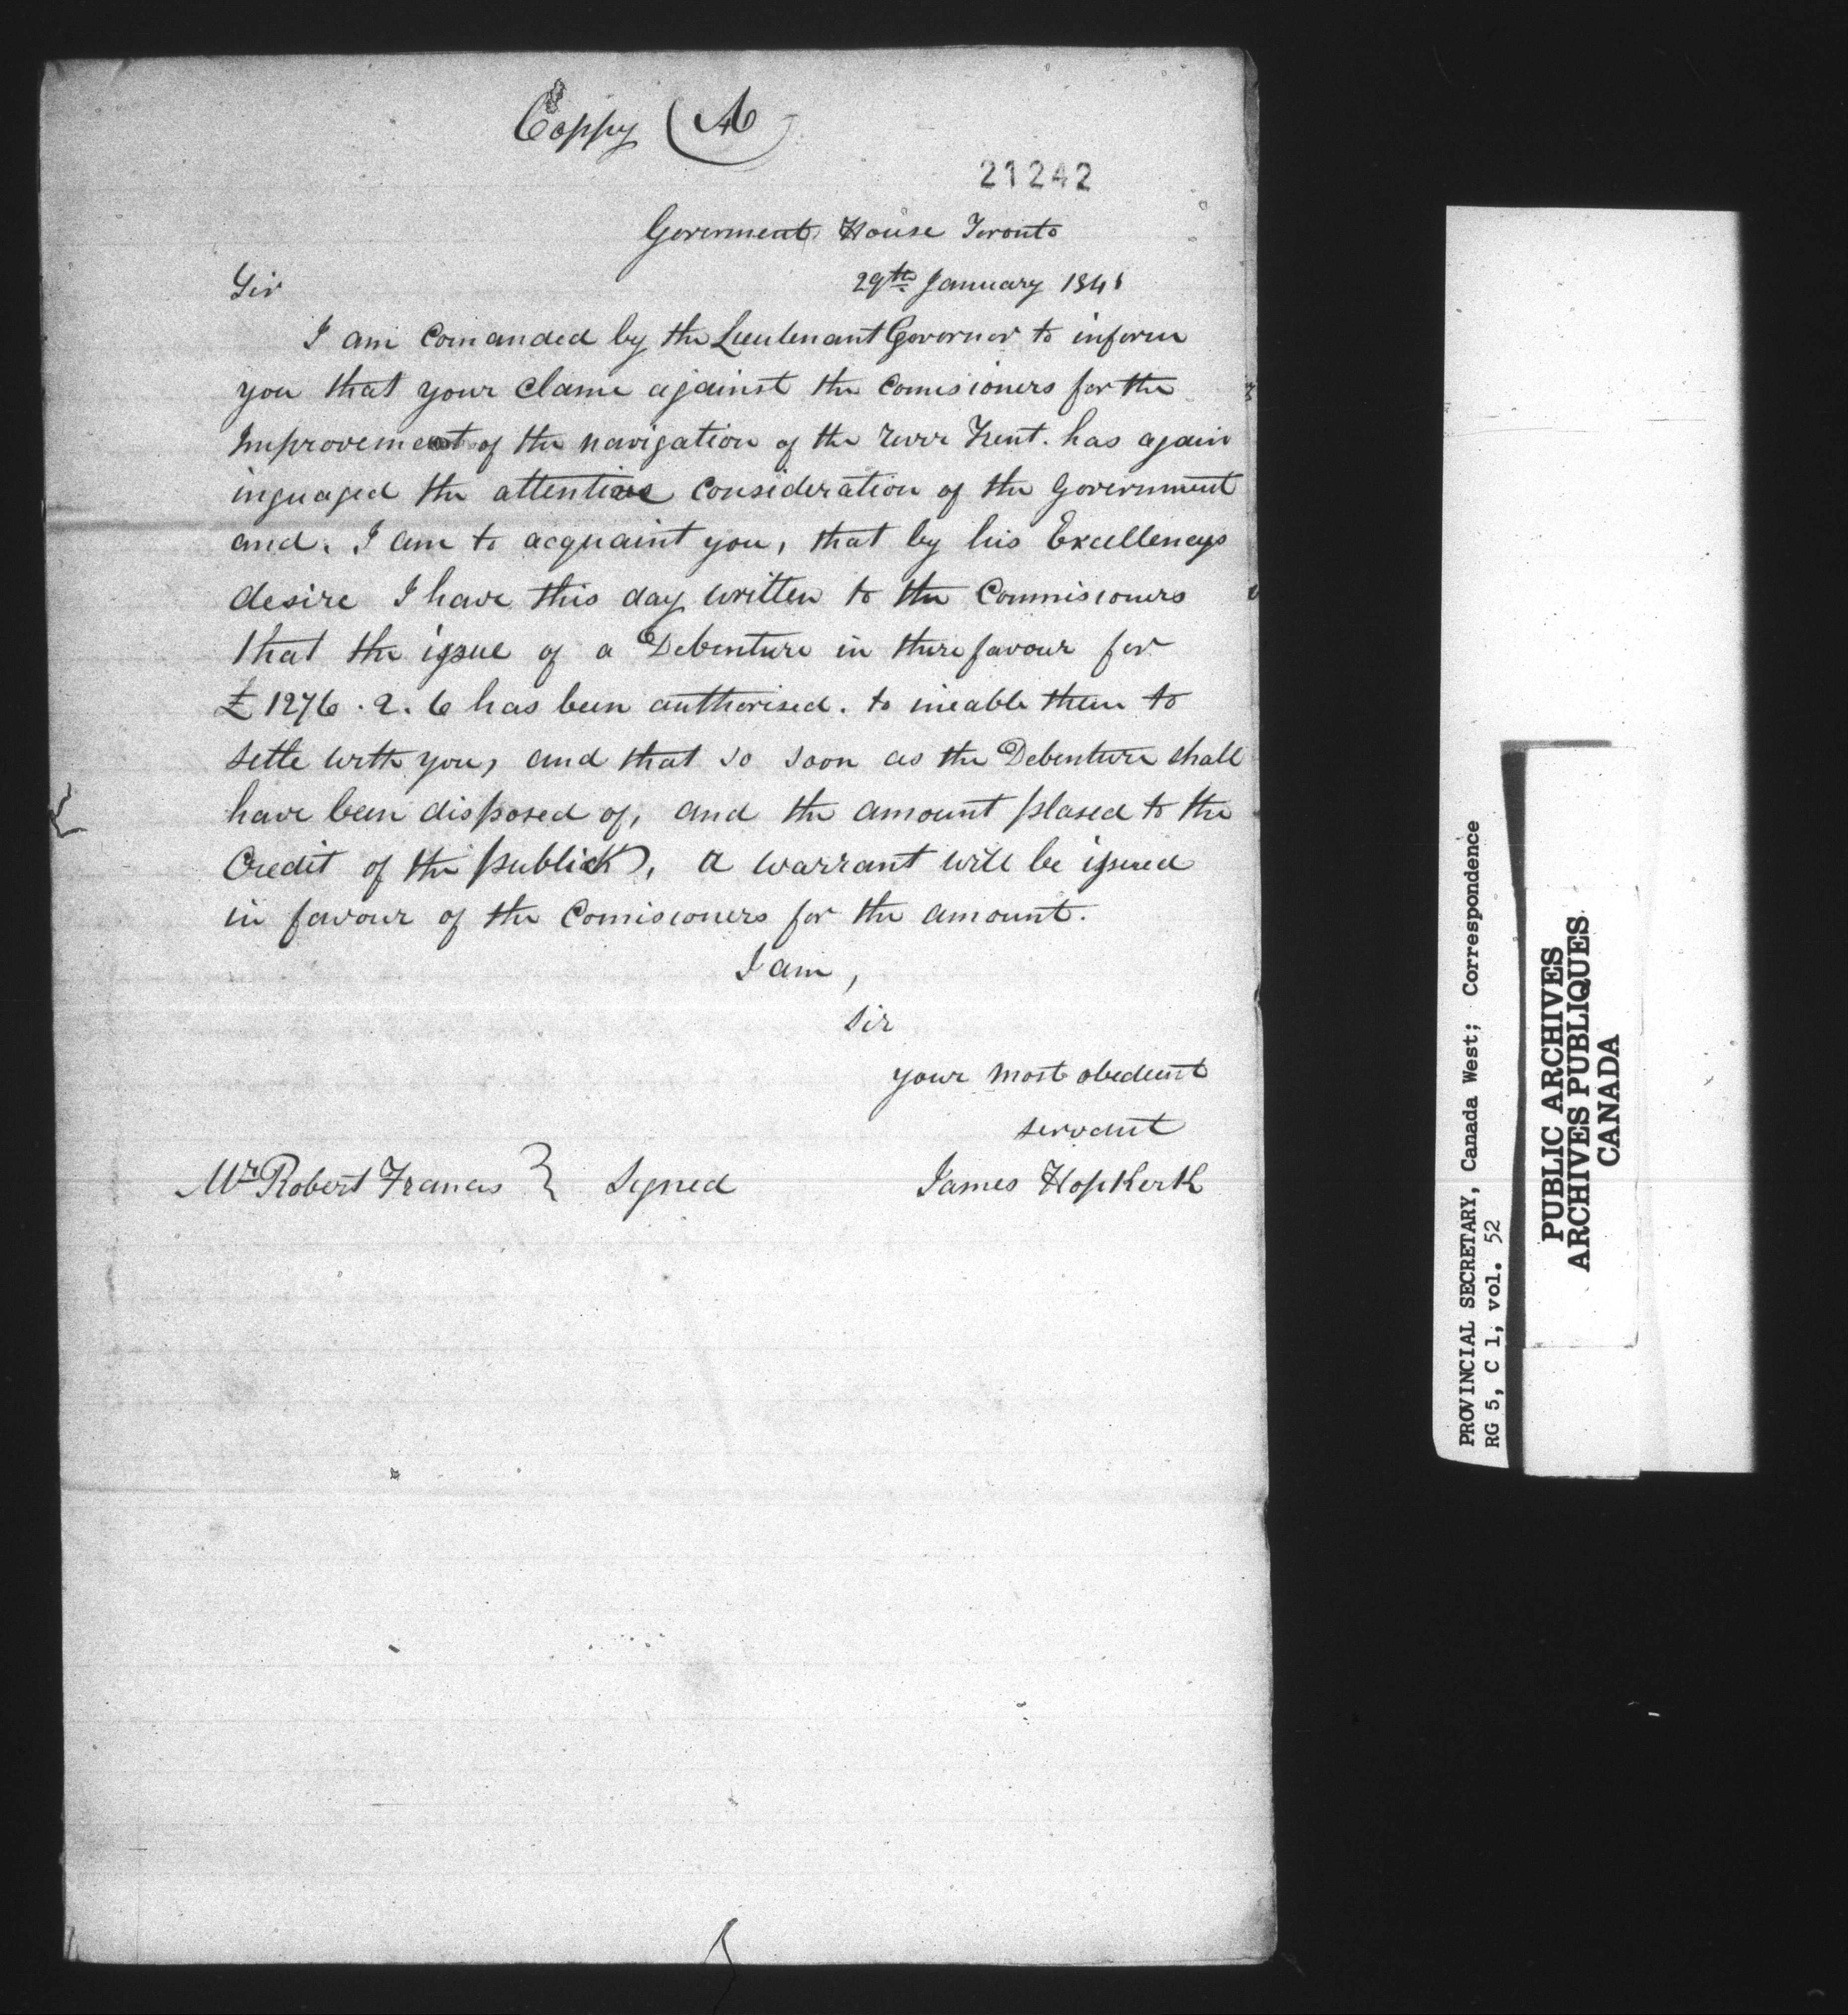 Coppy (A)
21242
Goverment House Toronto
Sir 29th January 1841
I am Comanded by the Lieutenant Governor to inform
you that your Clame against the Comisioners for the
Improvement of the navigation of the River Trent. has again
inguaged the attentive Consideration of the Government
and. I am to acquaint you, that by his Excellencys
desire I have this day written to the Commisioners
that the issue of a Debenture in there favour for
£1276.2.6 has been authorised. to ineable them to
settle with you, and that so soon as the Debenture shall
have been disposed of, and the amount plased to the
Credit of the publick, a warrant will be issued
in favour of the Comisioners for the amount.
I am,
Sir
your most obedient
servant
Mr Robert Francis } Signed James Hopkerk
PROVINCIAL SECRETARY, Canada West; Correspondence
RG 5, C 1, vol. 52
PUBLIC ARCHIVES
ARCHIVES PUBLIQUES
CANADA